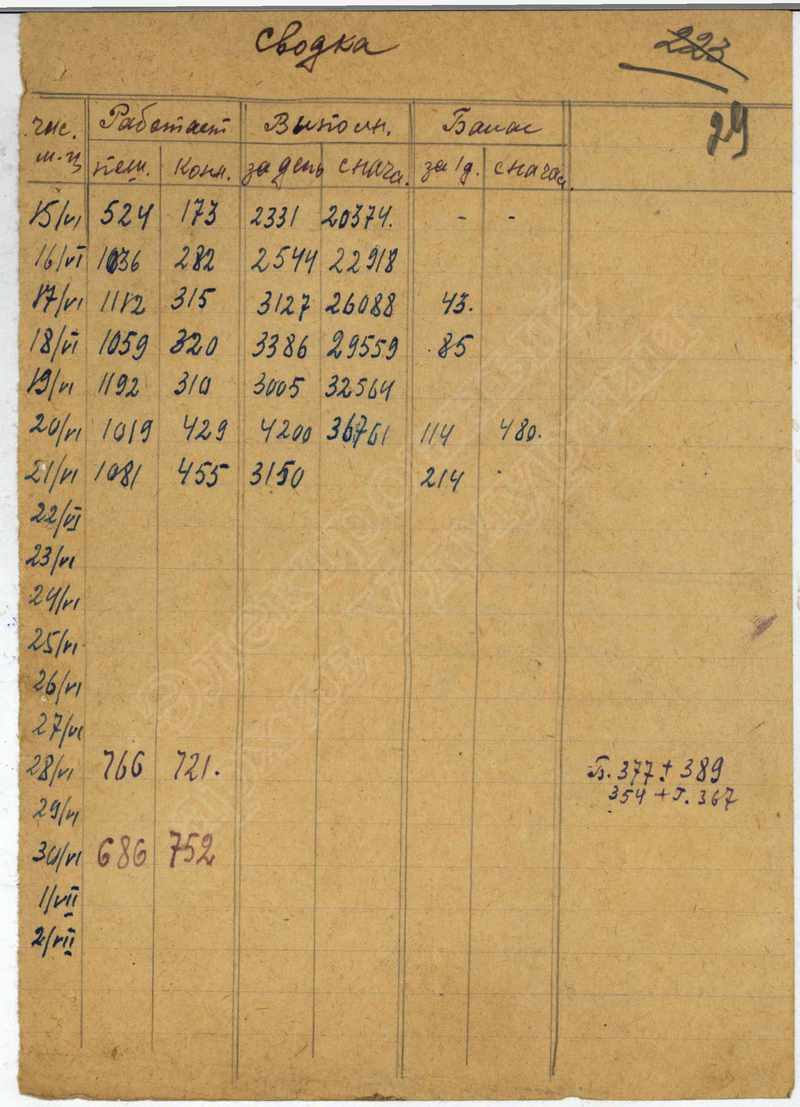 Сводка
223
29
чис. Работает Выполн. Балас
м-ц пеш. Конн. за день снача. за 1д. снача.
15/VI 524 173 2331 20374. - -
16/VI 1036 282 2544 22918
17/VI 1112 315 3127 26088 43.
18/VI 1059 320 3386 29559 85
19/VI 1192 310 3005 32564
20/VI 1019 429 4200 36761 114 480.
21/VI 1081 455 3150 214
22/VI
23/VI
24/VI
25/VI
26/VI
27/VI
28/VI 766 721. Б. 377 + 389
354 + Г. 367
29/VI
30/VI 686 752
1/VII
2/VII